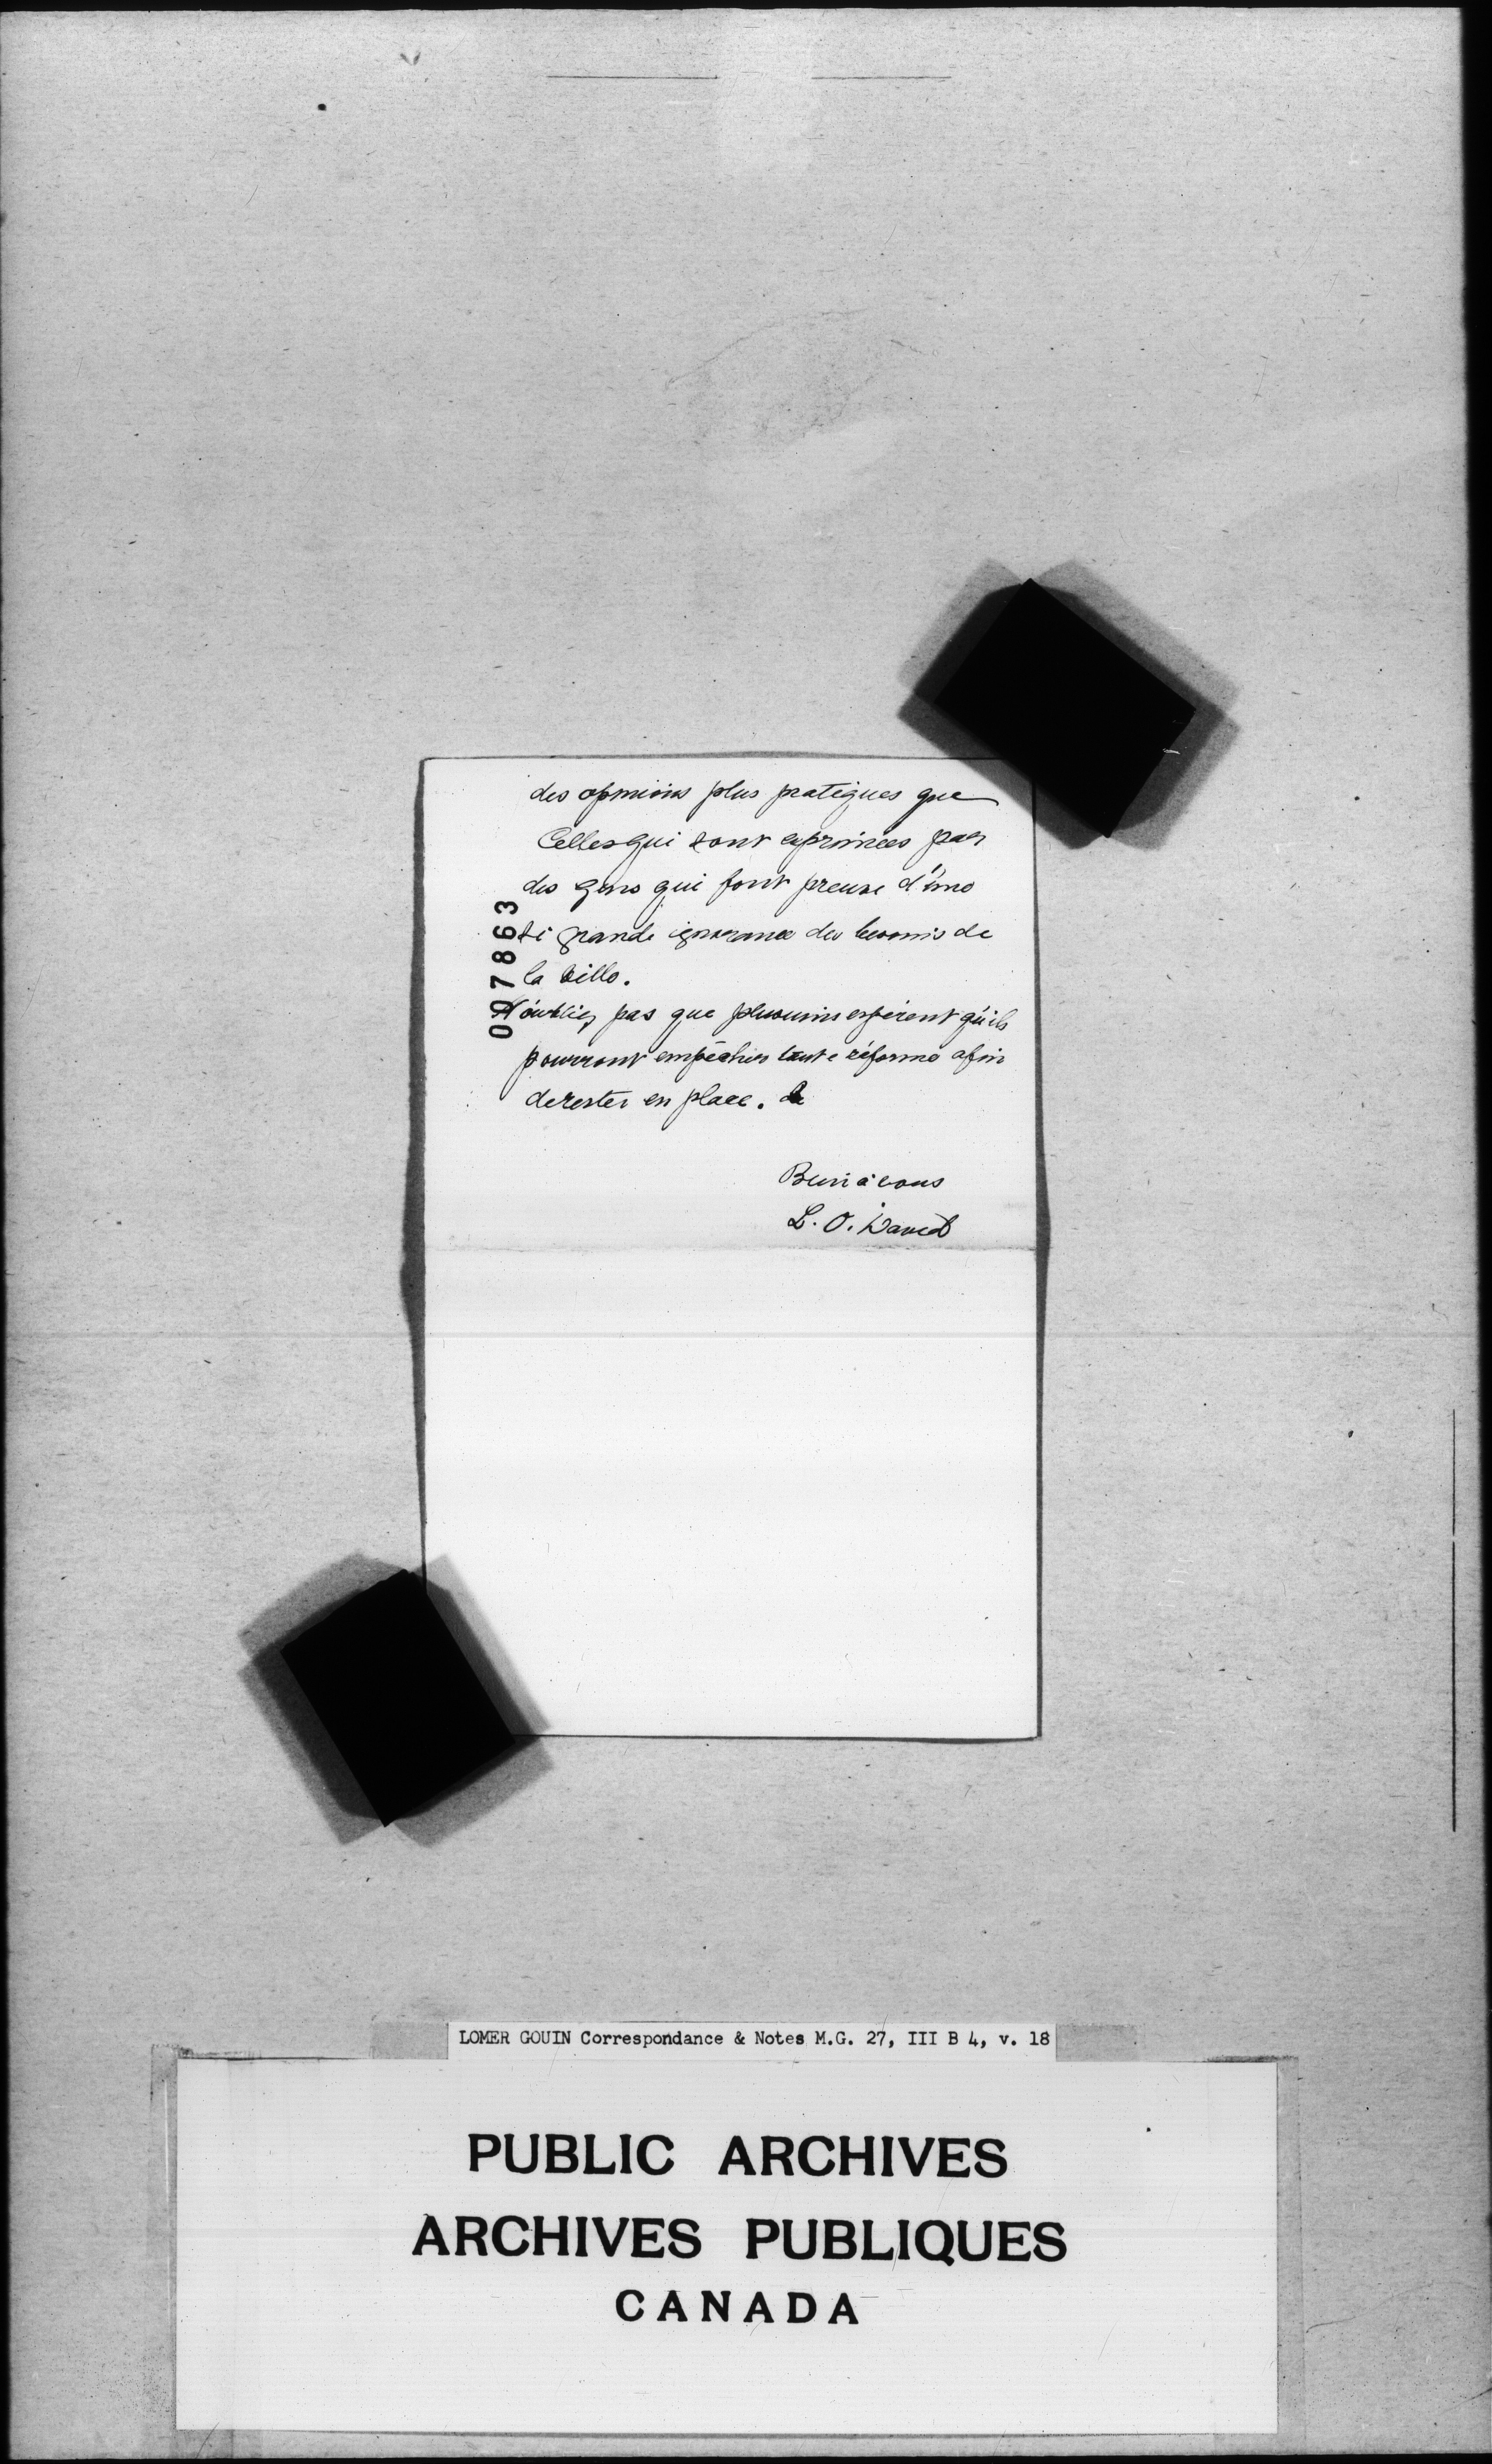 des opinions plus pratiques que
celles qui sont exprimées par
des gens qui font preuve d'une
si grande ignorance des besoins de
la ville.
N'oubliez pas que plusieurs espèrent qu'ils
pourront empêcher toute réforme afin
de rester en place.
Bien à vous
L. O. David
007863
LOMER GOUIN Correspondance & Notes M.G. 27, III B 4, v. 18
PUBLIC ARCHIVES
ARCHIVES PUBLIQUES
CANADA